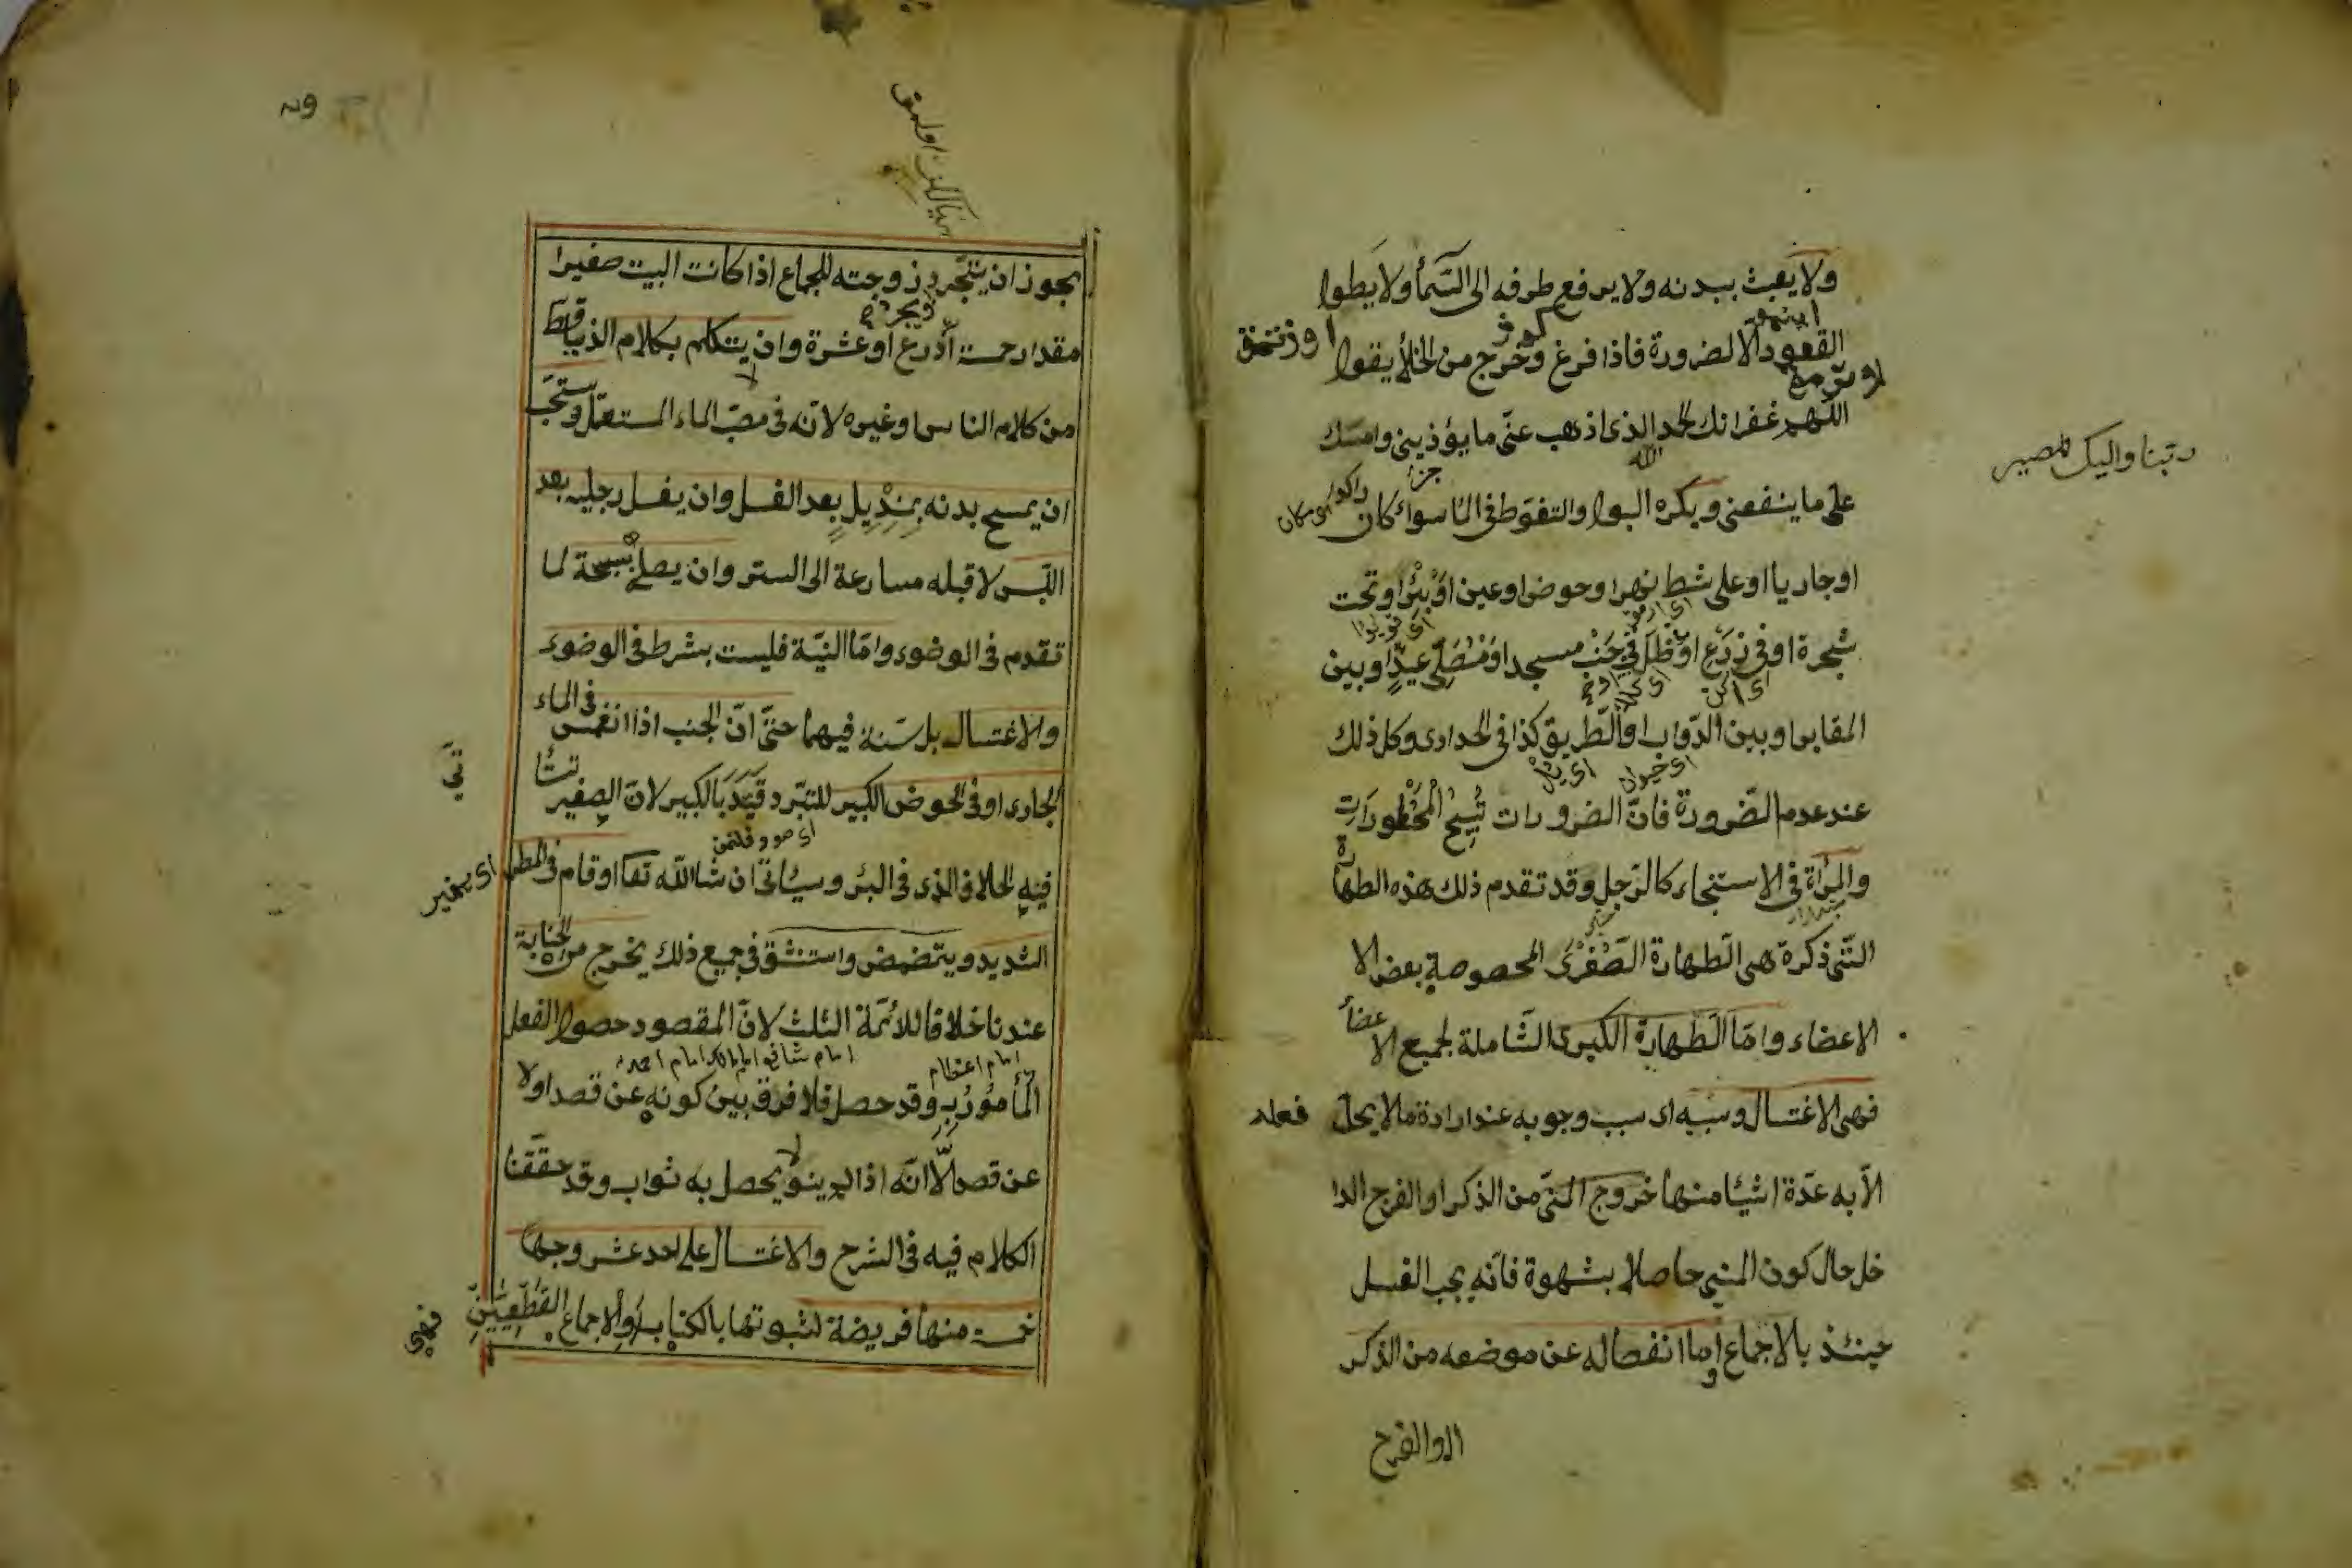 ولا يعبث ببدنه ولا يرفع طرفه الى السّمأ ولا يطول
القعود الّا لضرورة فاذا فرغ وخرج من الخلأ يقول
اللّهم غفرانك الحمد لله الذى اذهب عنّى ما يؤذينى وامسك
ربّنا واليك المصير
على ما ينفعنى ويكره البول والتغوّط فى الما سواء كان راكدا
او جاريا او على شط نهر او حوض او عين او بئر او تحت
شجرة او فى زرع او ظل فى جنب مسجد او مصلّى عيد او بين
المقابر او بين الدّواب او الطّريق كذا فى الحدادى وكل ذلك
عند عدم الضّرورة فانّ الضرورات تبيح المحظورات
والمرأة فى الاستنجاء كالرّجل وقد تقدم ذلك هذه الطهارة
الّتى ذكرة هى الطّهارة الصّغرى المحصوصة بعض الا
الاعضاء وامّا الطّهارة الكبرى الشّاملة لجميع الاعضأ
فهى الاغتسال وسببه اى سبب وجوبه عند ارادة ما لا يحلّ فعله
الّا به عدّة اشيأ منها خروج المنىّ من الذكر او الفرج الدا
خل حال كون المنىّ حاصلا بشهوة فانّه يجب الغسل
حينئذ بالاجماع واما انفصاله عن موضعه من الذكر
او الفرج
يجوز ان يتجرّد زوجته للجماع اذا كانت البيت صغيرا
مقدار خمسة أذرع او عشرة وان لا يتكلم بكلام الدنيا قطّ
من كلام الناس او غيره لانّه فى مصبّ الماء المستعمل ويستحبّ
ان يمسح بدنه بمنديل بعد الغسل وان يغسل رجليه بعد
اللّبس لا قبله مسارعة الى الستر وان يصلى سبحة لما
تقدم فى الوضوء وامّا النيّة فليست بشرط فى الوضوء
والاغتسال بل سنّة فيهما حتّى انّ الجنب اذا انغمس فى الماء
الجارى او فى الحوض الكبير للتبرّد قيّد بالكبير لانّ الصغير
فيه الخلاف الذى فى البئر وسيأتى ان شا الله تعا او قام فى المطر
الشديد ويتمضمض واستنشق فى جميع ذلك يخرج من الجنابة
عندنا خلافا للأئمّة الثلث لانّ المقصود حصول الفعل
امام شافعى امام مالك امام احمد
امام اعظم
المأمور به وقد حصل فلا فرق بين كونه عن قصد او لا
عن قصد الّا انّه اذا لم ينو لا يحصل به ثواب وقد حقّقنا
الكلام فيه فى الشرح والاغتسال على احد عشر وجها
خمسة منها فريضة لثبوتها بالكتاب او الاجماع القطعيّين
فهى